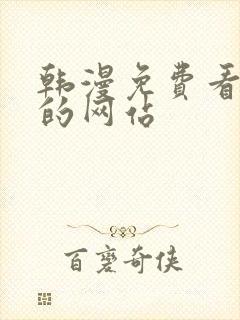 韩漫免费看
的网站
百变奇侠